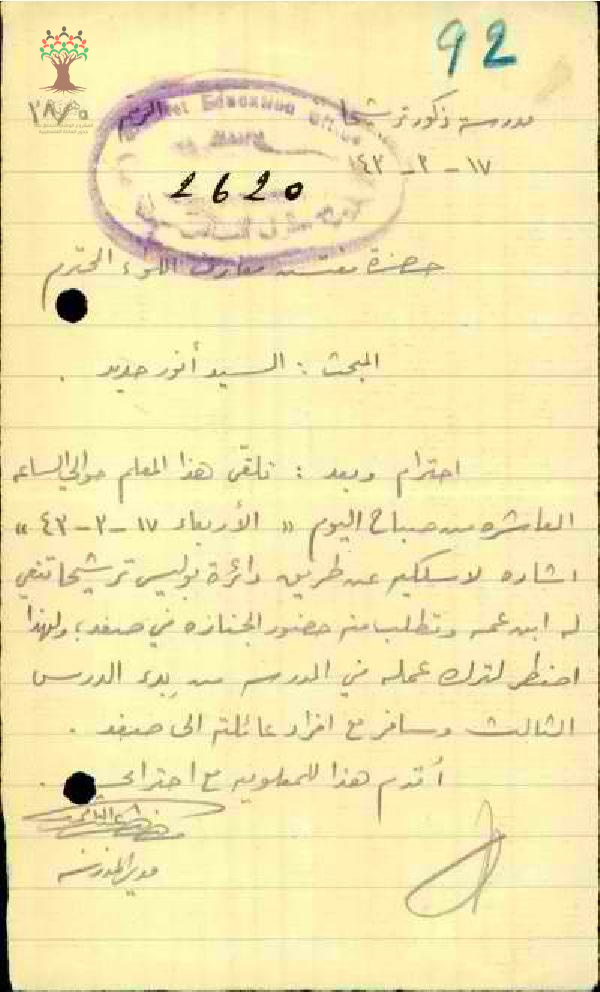 92
مدرسة ذكور ترشيحا الرقم ٢٨/٥
١٧ - ٣ - ٤٣
District Education Office
2620
حضرة مفتش معارف اللواء المحترم
المبحث : السيد أنور حديد .
احترام وبعد : تلقى هذا المعلم حوالي الساعه
العاشره من صباح اليوم " الأربعاء ١٧ - ٣ - ٤٣ "
اشاره لاسلكيه عن طريق دائرة بوليس ترشيحا تنعي
له ابن عمه وتطلب منه حضور الجنازه في صفد ، ولهذا
اضطر لترك عمله في المدرسه من بدء الدرس
الثالث وسافر مع افراد عائلته الى صفد .
أقدم هذا للمعلوميه مع احترامي .
مدير المدرسة